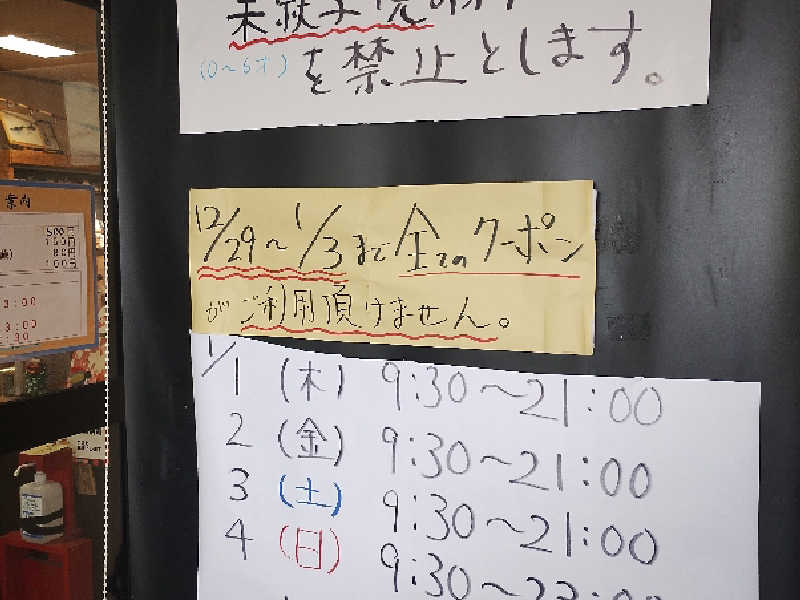 (0〜6才)を禁止とします。
案内
500円
150円
80円
100円
12/29〜1/3まで全てのクーポン
がご利用頂けません。
1/1(木) 9:30〜21:00
2(金) 9:30〜21:00
3(土) 9:30〜21:00
4(日) 9:30〜